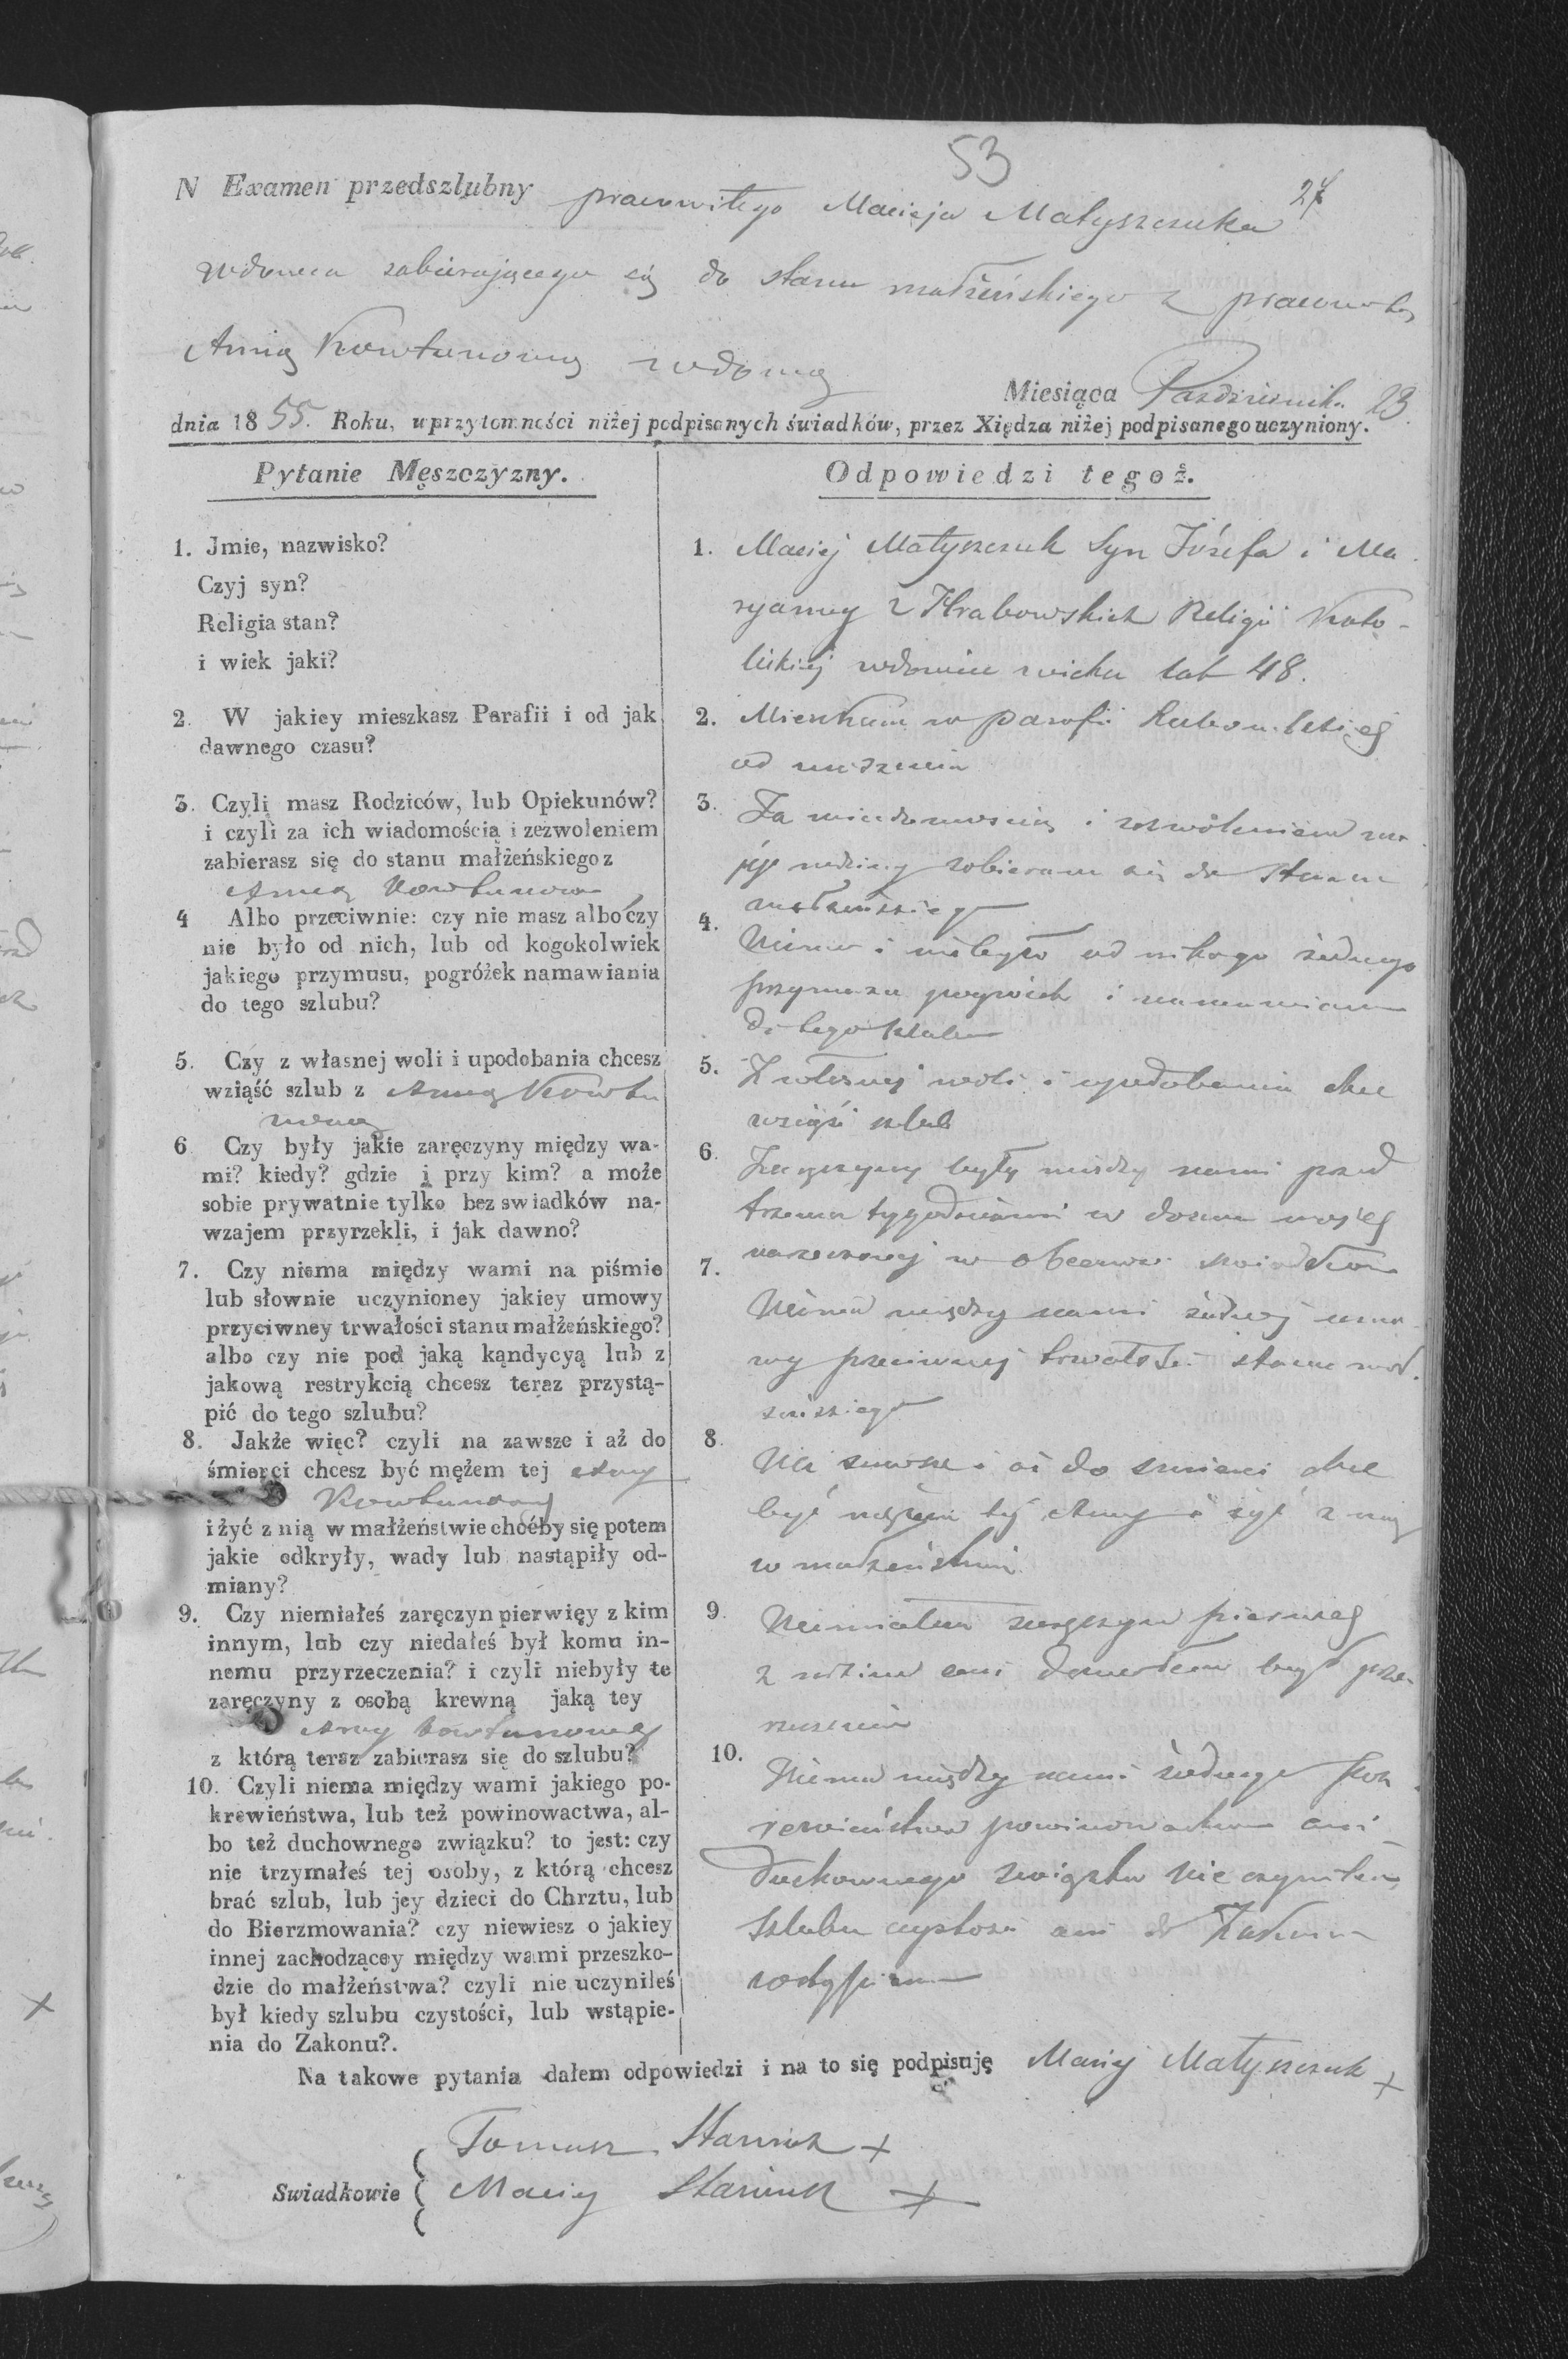 53
27
N Examen przedszlubny pracowitego Macieja Matyszczuka
wdowca zabierającego się do stanu małżeńskiego z pracowitą
Anną Kowtunową wdową
Miesiąca Pazdziernik. 23.
dnia 1855. Roku, w przytomności niżej podpisanych świadków, przez Xiędza niżej podpisanego uczyniony.
Pytanie Męszczyzny.
1. Jmie, nazwisko?
Czyj syn?
Religia stan?
i wiek jaki?
2. W jakiey mieszkasz Parafii i od jak
dawnego czasu?
3. Czyli masz Rodziców, lub Opiekunów?
i czyli za ich wiadomością i zezwoleniem
zabierasz się do stanu małżeńskiego z
Anną Kowtunową
4 Albo przeciwnie: czy nie masz albo czy
nie było od nich, lub od kogokolwiek
jakiego przymusu, pogróżek namawiania
do tego szlubu?
5. Czy z własnej woli i upodobania chcesz
wziąść szlub z Anną Kowtu
nową
6 Czy były jakie zaręczyny między wa-
mi? kiedy? gdzie i przy kim? a może
sobie prywatnie tylko bez swiadków na-
wzajem przyrzekli, i jak dawno?
7. Czy niema między wami na piśmie
lub słownie uczynioney jakiey umowy
przyciwney trwałości stanu małżeńskiego?
albo czy nie pod jaką kąndycyą lub z
jakową restrykcią chcesz teraz przystą-
pić do tego szlubu?
8. Jakże więc? czyli na zawsze i aż do
śmierci chcesz być mężem tej Anny
Kowtunowej
i żyć z nią w małżeństwie choćby się potem
jakie odkryły, wady lub nastąpiły od-
miany?
9. Czy niemiałeś zaręczyn pierwięy z kim
innym, lub czy niedałeś był komu in-
nemu przyrzeczenia? i czyli niebyły te
zaręczyny z osobą krewną jaką tey
Anny Kowtunowej
z którą teraz zabierasz się do szlubu?
10. Czyli niema między wami jakiego po-
krewieństwa, lub też powinowactwa, al-
bo też duchownego związku? to jest: czy
nie trzymałeś tej osoby, z którą chcesz
brać szlub, lub jey dzieci do Chrztu, lub
do Bierzmowania? czy niewiesz o jakiey
innej zachodzącey między wami przeszko-
dzie do małżeństwa? czyli nie uczyniłeś
był kiedy szlubu czystości, lub wstąpie-
nia do Zakonu?.
Odpowiedzi tegoż.
1. Maciej Matyszczuk Syn Józefa i Ma
ryanny z Hrabowskich Religii Kato-
lickiej wdowiec wieku lat 48.
2. Mieszkam w parafii
od urodzenia
3. Za wiadomością i zezwoleniem mo
jej rodziny zabieram się do stanu
małżeńskiego
4. Niema i niebyło od nikogo żadnego
przymusu i namawiania
do tego szlubu
5. Z własnej woli i upodobania chcę
wziąść szlub
6. Zaręczyny były między nami przed
trzema tygodniami w domu mojej
narzeczonej w świadków
7. Niema między nami żadnej umo
wy przeciwnej trwałości stanu mał.
żeńskiego
8. Na zawsze i aż do śmierci chcę
być mężem tej Anny i żyć z nią
w małżeństwie
9. Niemiałem zaręczyn pierwiej
z nikim ani był prze-
10. Niema między nami żadnego pok
rewieństwa powinowactwa ani
duchownego związku nie czyniłem
Szlubu czystości ani do Zakonu
Na takowe pytania dałem odpowiedzi i na to się podpisuję Maciej Matyszczuk +
Swiadkowie
Tomasz +
Maciej +